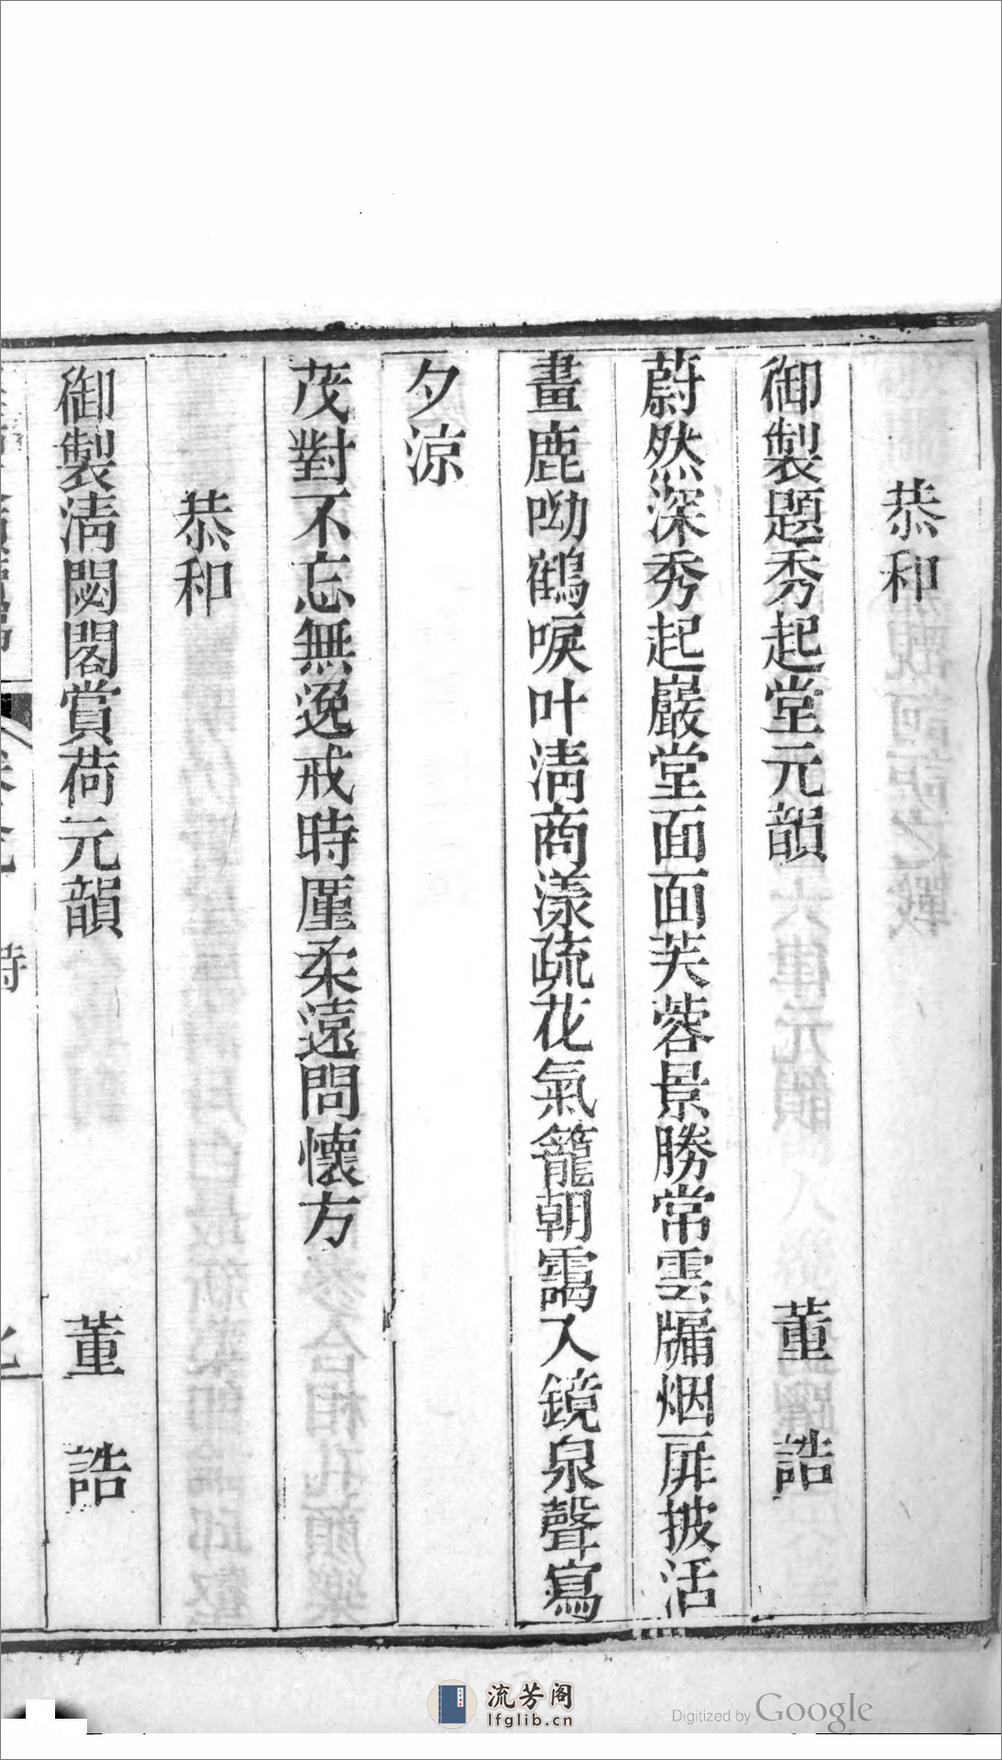 恭和
御製題秀起堂元韻　董　誥
蔚然深秀起巖堂面面芙蓉景勝常雲牖烟屏披活
畫鹿呦鶴唳叶清商漾疏花氣籠朝靄入鏡泉聲寫
夕涼
茂對不忘無逸戒時廑柔遠問懷方
恭和
御製清閟閣賞荷元韻　董　誥
流芳阁
lfglib.cn
Digitized by Google